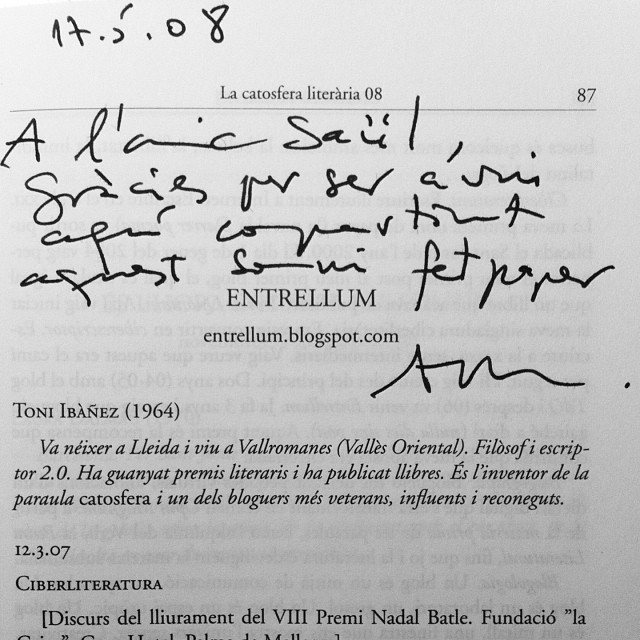 17.5.08
La catosfera literària 08 87
A l'amic Saül!
Gràcies per ser avui
aquí compartint
aquest somni fet paper
ENTRELLUM
entrellum.blogspot.com
TONI IBÀÑEZ (1964)
Va néixer a Lleida i viu a Valromanes (Vallès Oriental). Filòsof i escrip-
tor 2.0. Ha guanyat premis literaris i ha publicat llibres. És l'inventor de la
paraula catosfera i un dels bloguers més veterans, influents i reconeguts.
12.3.07
CIBERLITERATURA
[Discurs del lliurament del VIII Premi Nadal Batle. Fundació "la